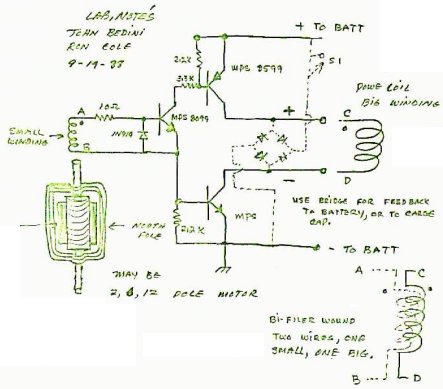 LAB, NOTES
JOHN BEDINI
RON COLE
9-14-83
+ TO BATT
S1
2.2K
3.3K
MPS 8599
10Ω
A
MPS 8099
1N914
SMALL
WINDING
B
+
POWE COIL
BIG WINDING
C
D
−
USE BRIDGE FOR FEEDBACK
TO BATTERY, OR TO CARGE
CAP.
MPS
NORTH
POLE
- TO BATT
MAY BE
POLE MOTOR
A
C
BI-FILER WOUND
TWO WIRES, ONE
SMALL, ONE BIG.
B
D